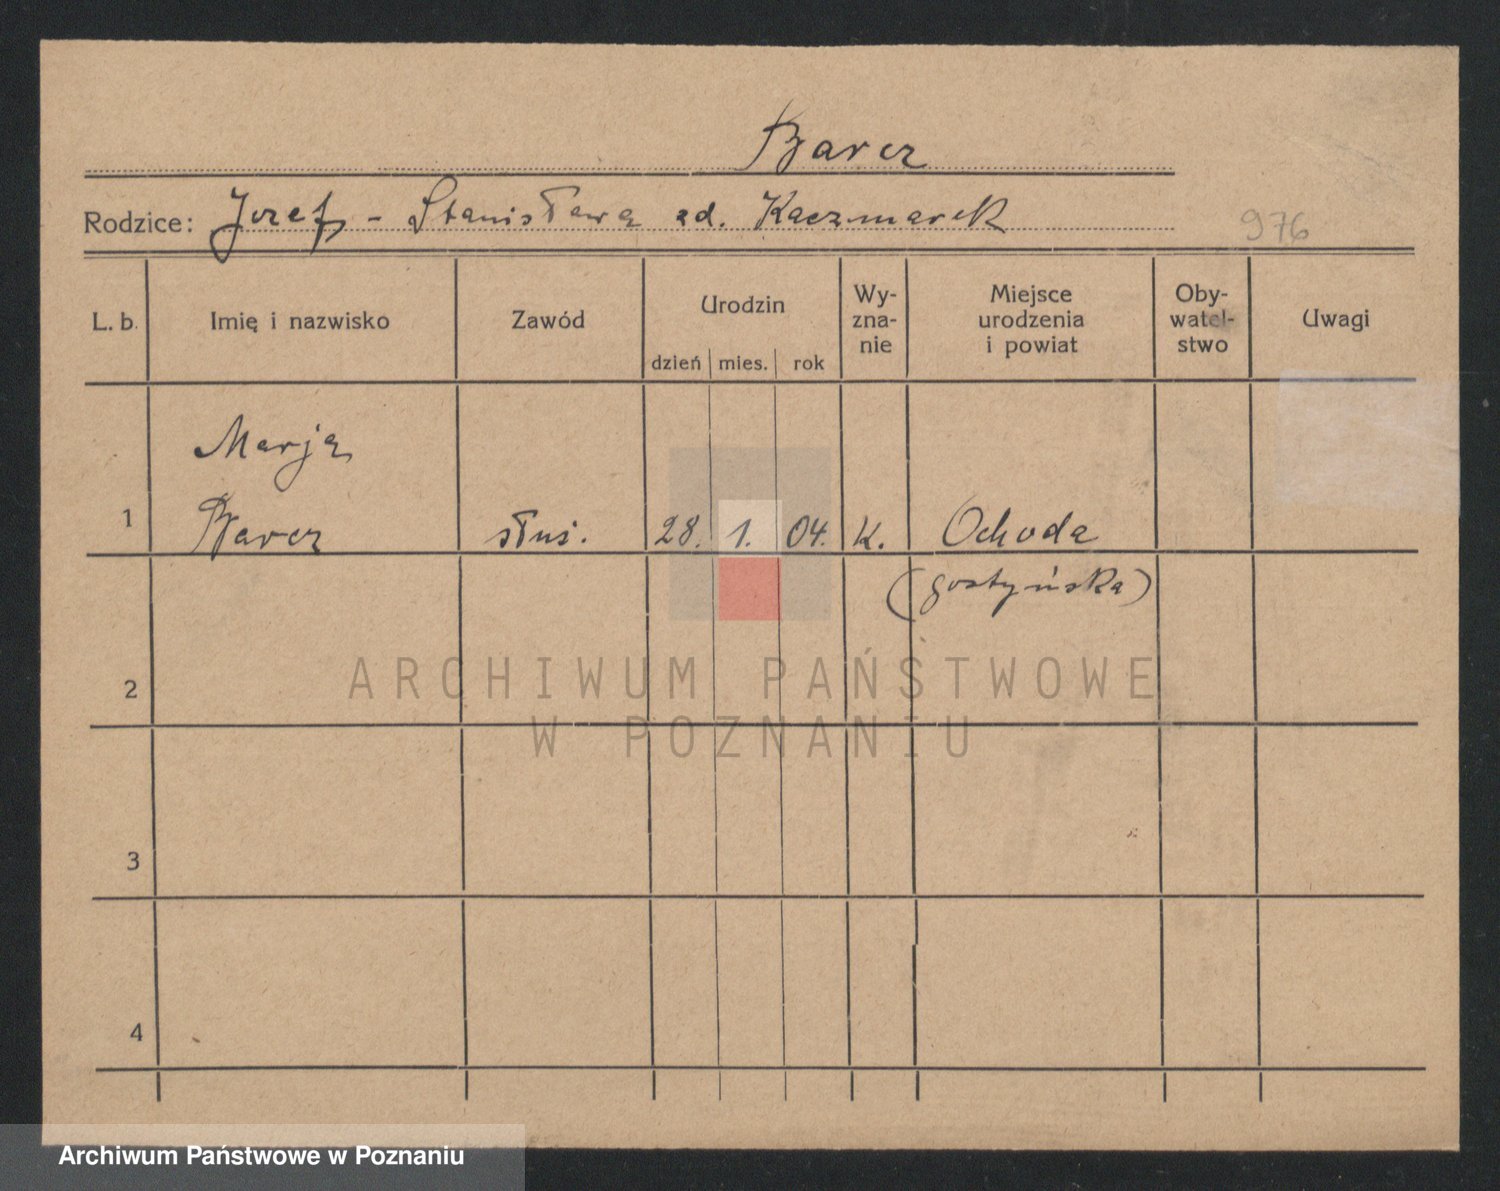 Barcz
Rodzice: Jozef - Stanisława zd. Kaczmarek
976
L. b. Imię i nazwisko Zawód Urodzin dzień mies. rok Wy-zna-nie Miejsce urodzenia i powiat Oby-watel-stwo Uwagi
Marja
1 Barcz służ. 28. 1. 04. K. Ochoda
(gostyńska)
2
ARCHIWUM PAŃSTWOWE
W POZNANIU
3
4
Archiwum Państwowe w Poznaniu